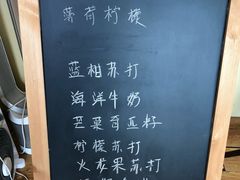 薄荷柠檬
蓝柑苏打
海洋牛奶
芒果奇亚籽
柠檬苏打
火龙果苏打